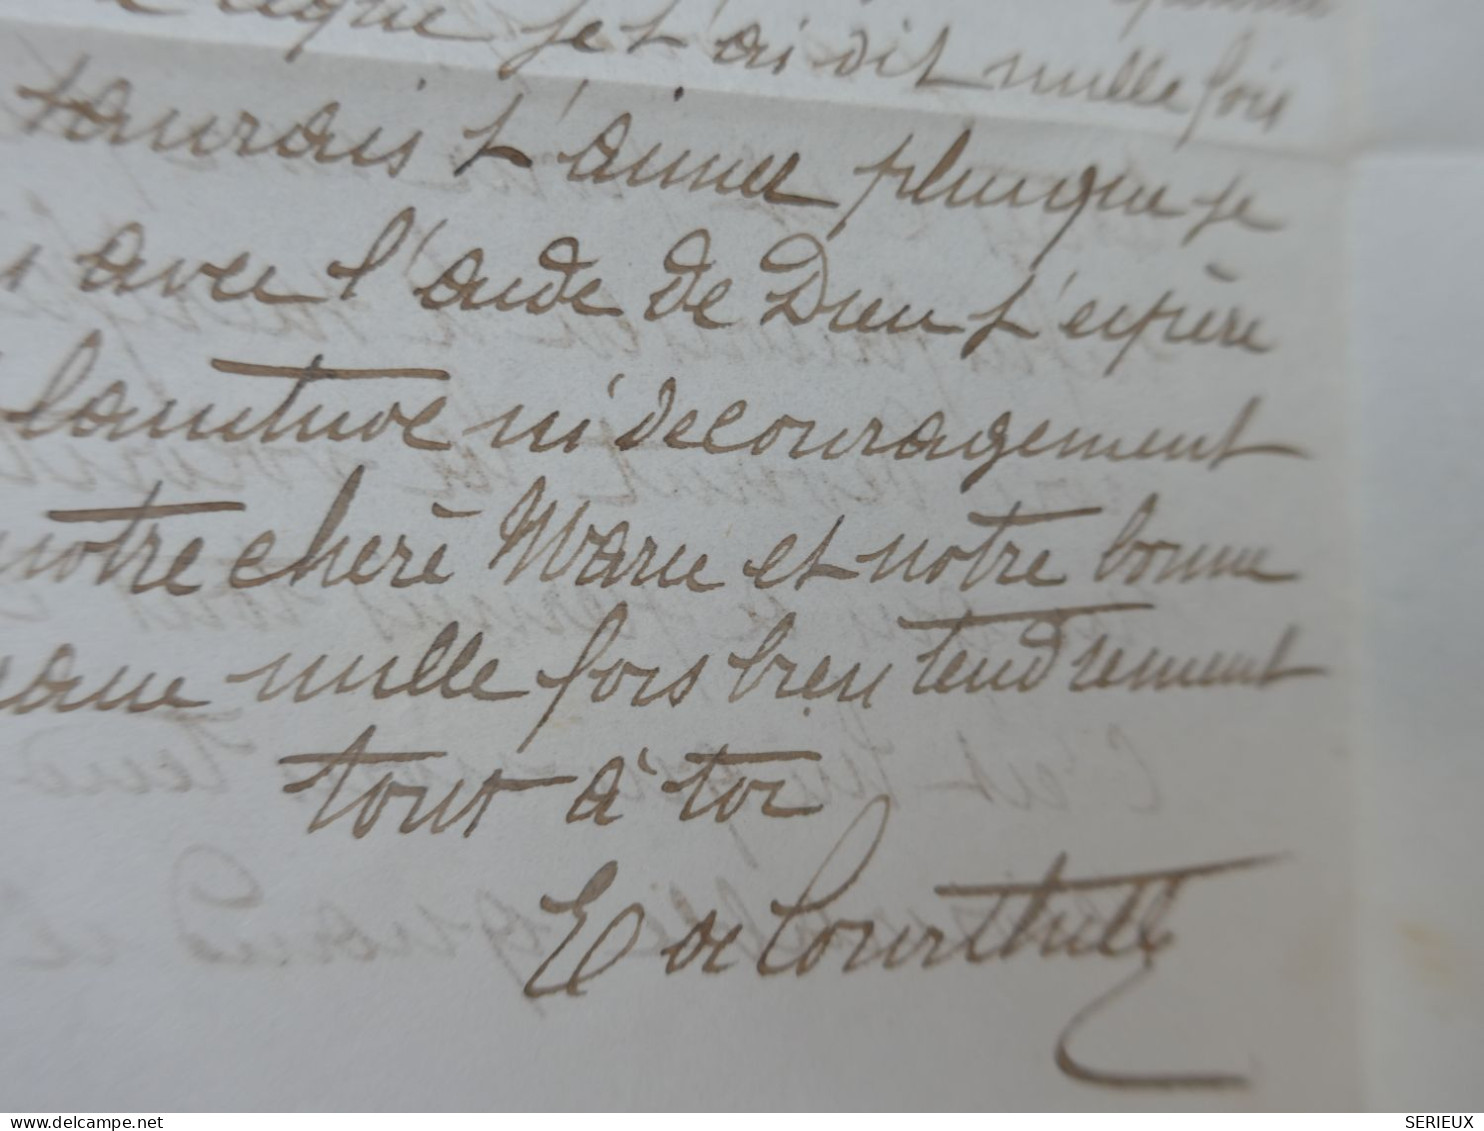 ceque je t'ai dit mille fois
saurais t'aimer plus que je
avec l'aide de Dieu j'espère
lassitude ni decouragement
notre chere Marie et notre bonne
mille fois bien tendrement
tout à toi
E de Courthille
delcampe.net
SERIEUX